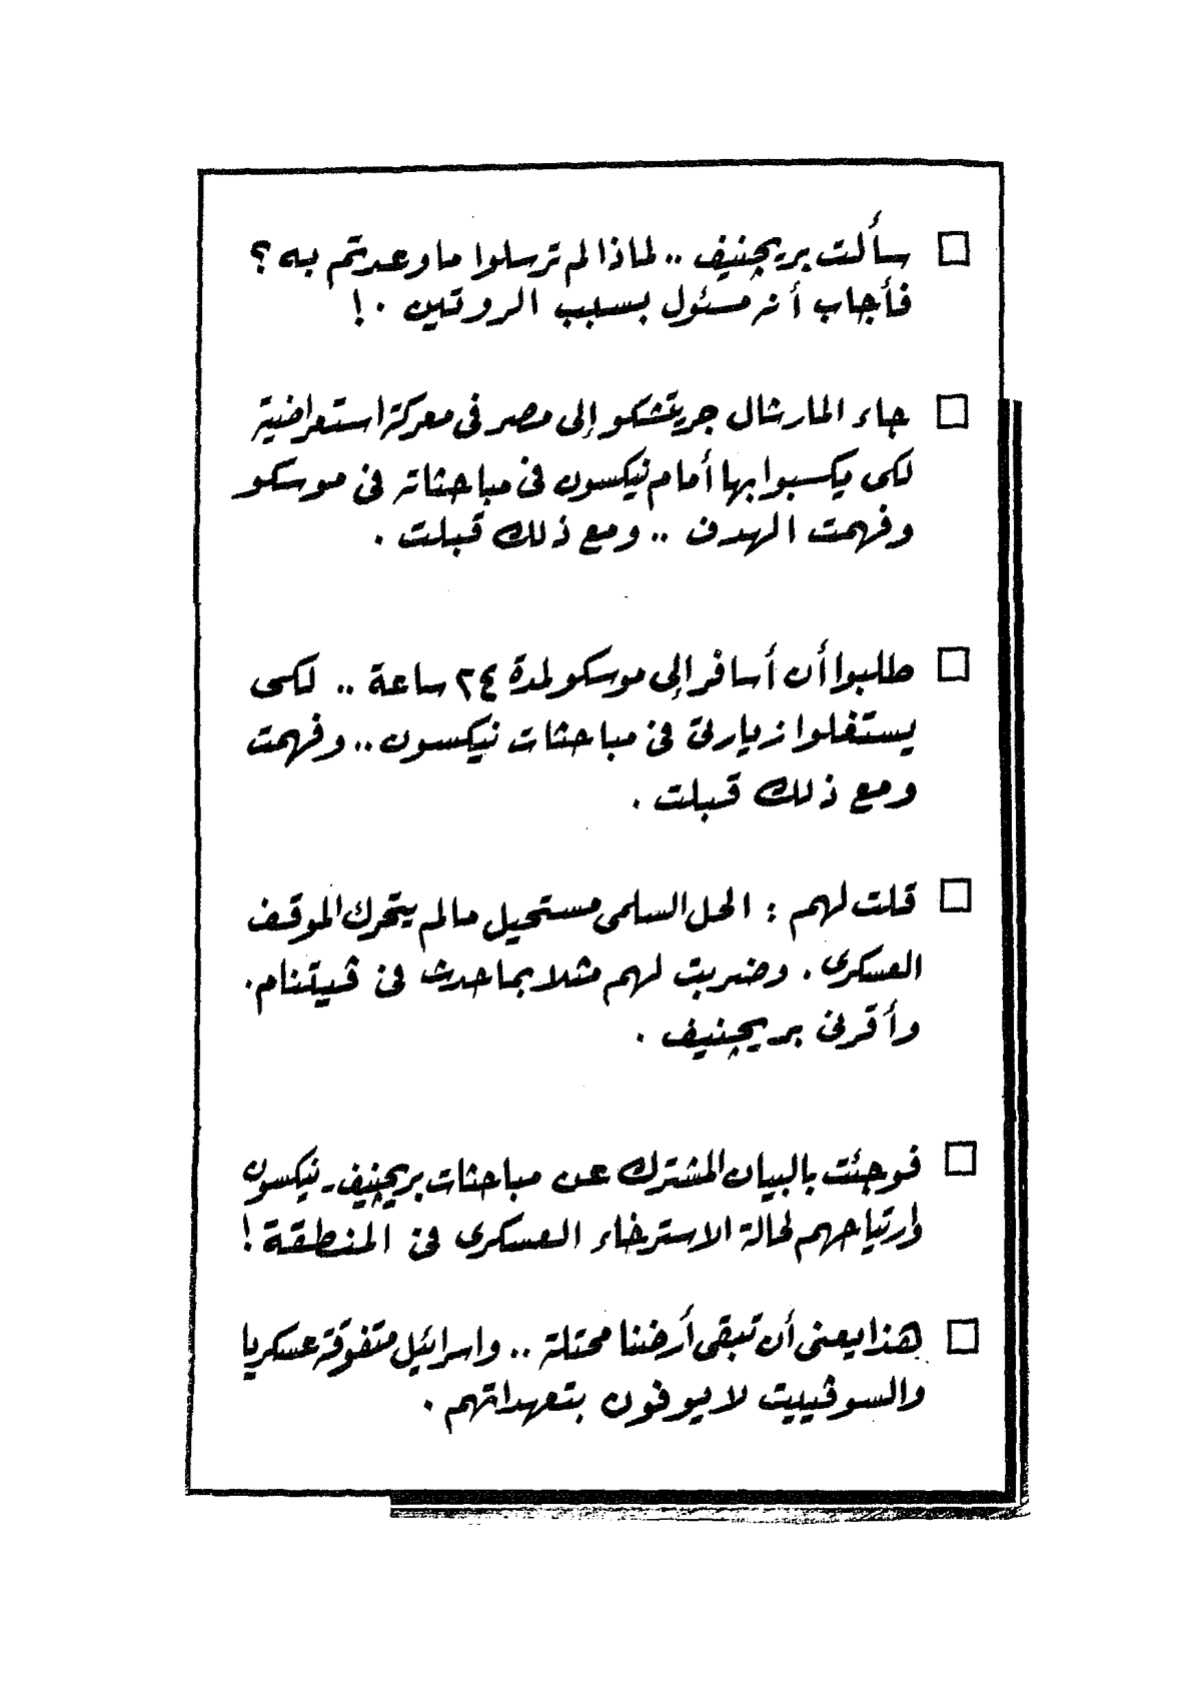 □ سألت بريچنيف .. لماذا لم ترسلوا ما وعدتم به ؟
فأجاب أنه مسئول بسبب الروتين . !
□ جاء المارشال جريتشكو إلى مصر فى معركة استعراضية
لكى يكسبوا بها أمام نيكسون فى مباحثاته فى موسكو
وفهمت الهدف .. ومع ذلك قبلت .
□ طلبوا أن أسافر إلى موسكو لمدة ٢٤ ساعة .. لكى
يستغلوا زيارتى فى مباحثات نيكسون .. وفهمت
ومع ذلك قبلت .
□ قلت لهم : الحل السلمى مستحيل مالم يتحرك الموقف
العسكرى . وضربت لهم مثلا بما حدث فى ڤيتنام .
وأقرنى بريچنيف .
□ فوجئت بالبيان المشترك عن مباحثات بريچنيف - نيكسون
وارتياحهم لحالة الاسترخاء العسكرى فى المنطقة !
□ هذا يعنى أن تبقى أرضنا محتلة .. واسرائيل متفوقة عسكريا
والسوڤييت لا يوفون بتعهداتهم .